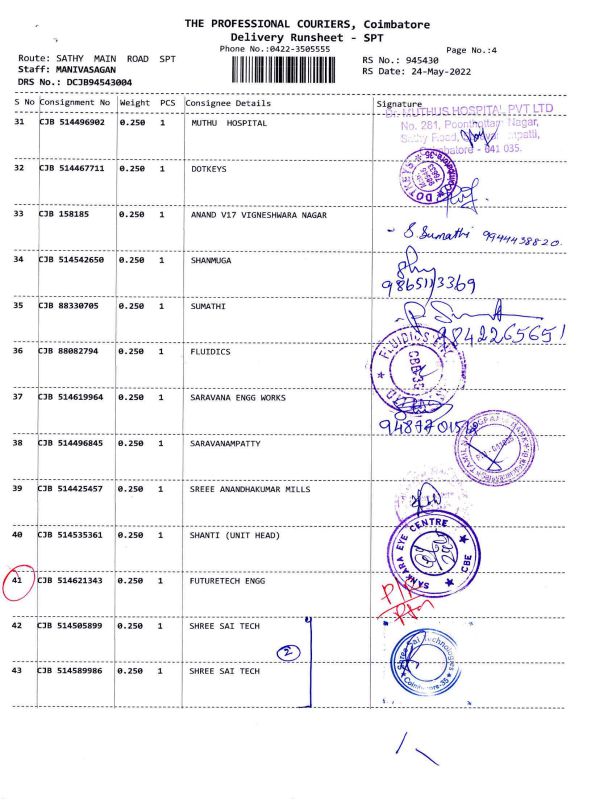 THE PROFESSIONAL COURIERS, Coimbatore
Delivery Runsheet - SPT
Phone No.:0422-3505555
Page No.:4
Route: SATHY MAIN ROAD SPT
RS No.: 945430
Staff: MANIVASAGAN
RS Date: 24-May-2022
DRS No.: DCJB94543004
S No Consignment No Weight PCS Consignee Details Signature
31 CJB 514496902 0.250 1 MUTHU HOSPITAL
Dr. MUTHUS HOSPITAL PVT LTD
No. 281, Poonthottam Nagar,
- 641 035.
32 CJB 514467711 0.250 1 DOTKEYS
DOTKEYS
33 CJB 158185 0.250 1 ANAND V17 VIGNESHWARA NAGAR
- S. Sumathi 9944438820.
34 CJB 514542650 0.250 1 SHANMUGA
9865113369
35 CJB 88330705 0.250 1 SUMATHI
9842265651
36 CJB 88082794 0.250 1 FLUIDICS
FLUIDICS
37 CJB 514619964 0.250 1 SARAVANA ENGG WORKS
38 CJB 514496845 0.250 1 SARAVANAMPATTY
39 CJB 514425457 0.250 1 SREEE ANANDHAKUMAR MILLS
40 CJB 514535361 0.250 1 SHANTI (UNIT HEAD)
SANKARA EYE CENTRE
CBE
41 CJB 514621343 0.250 1 FUTURETECH ENGG
42 CJB 514505899 0.250 1 SHREE SAI TECH
2
43 CJB 514589986 0.250 1 SHREE SAI TECH
Shree Sai Technologies
Coimbatore-35